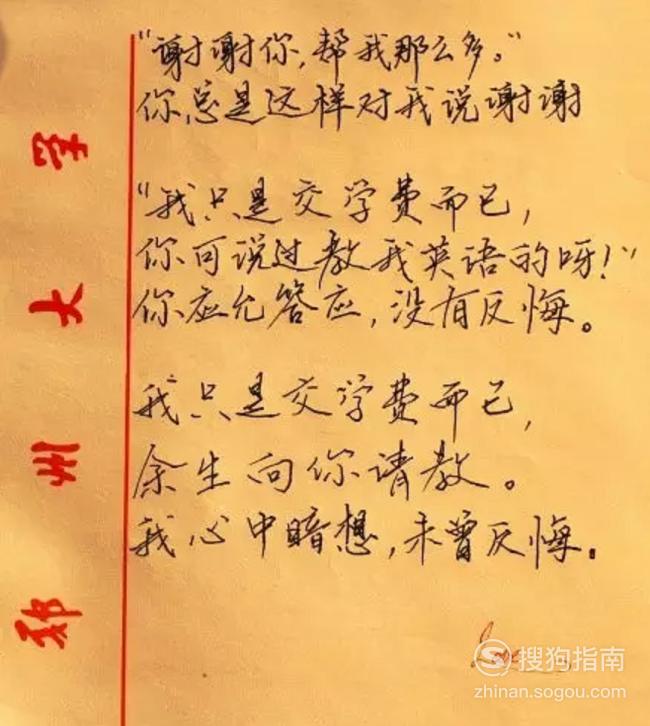 “谢谢你,帮我那么多。”
你总是这样对我说谢谢
“我只是交学费而已,
你可说过教我英语的呀!”
你应允答应,没有反悔。
我只是交学费而已,
余生向你请教。
我心中暗想,未曾反悔。
郑州大学
Love
搜狗指南
zhinan.sogou.com